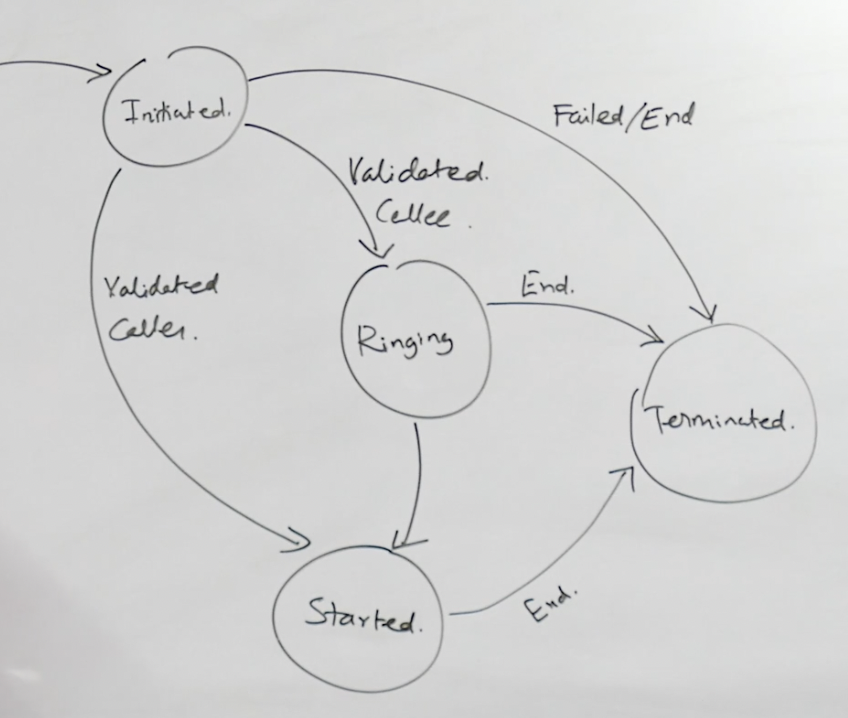 Initiated.
Failed/End
Validated.
Callee.
Validated
Caller.
End.
Ringing
Terminated.
Started.
End.